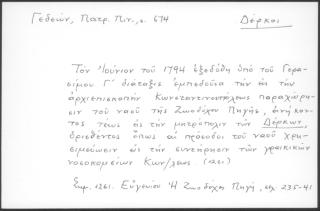 Γεδεών, Πατρ. Πιν., σ. 674
Δέρκοι
Τὸν Ἰούνιον τοῦ 1794 ἐξεδόθη ὑπὸ τοῦ Γερα-
σίμου Γ΄ διάταξις ἐμποδίζουσα τὴν εἰς τὴν
ἀρχιεπισκοπὴν Κωνσταντινουπόλεως παραχώρη-
σιν τοῦ ναοῦ τῆς Ζωοδόχου Πηγῆς, ἀνήκον-
τος τέως εἰς τὴν μητρόπολιν τῶν Δέρκων,
ὁρισθέντος ὅπως αἱ πρόσοδοι τοῦ ναοῦ χρη-
σιμεύσωσιν εἰς τὴν συντήρησιν τῶν γραικικῶν
νοσοκομείων Κων/λεως. (1261)
Σημ. 1261. Εὐγενίου Ἡ Ζωοδόχος Πηγή, σελ. 235-41